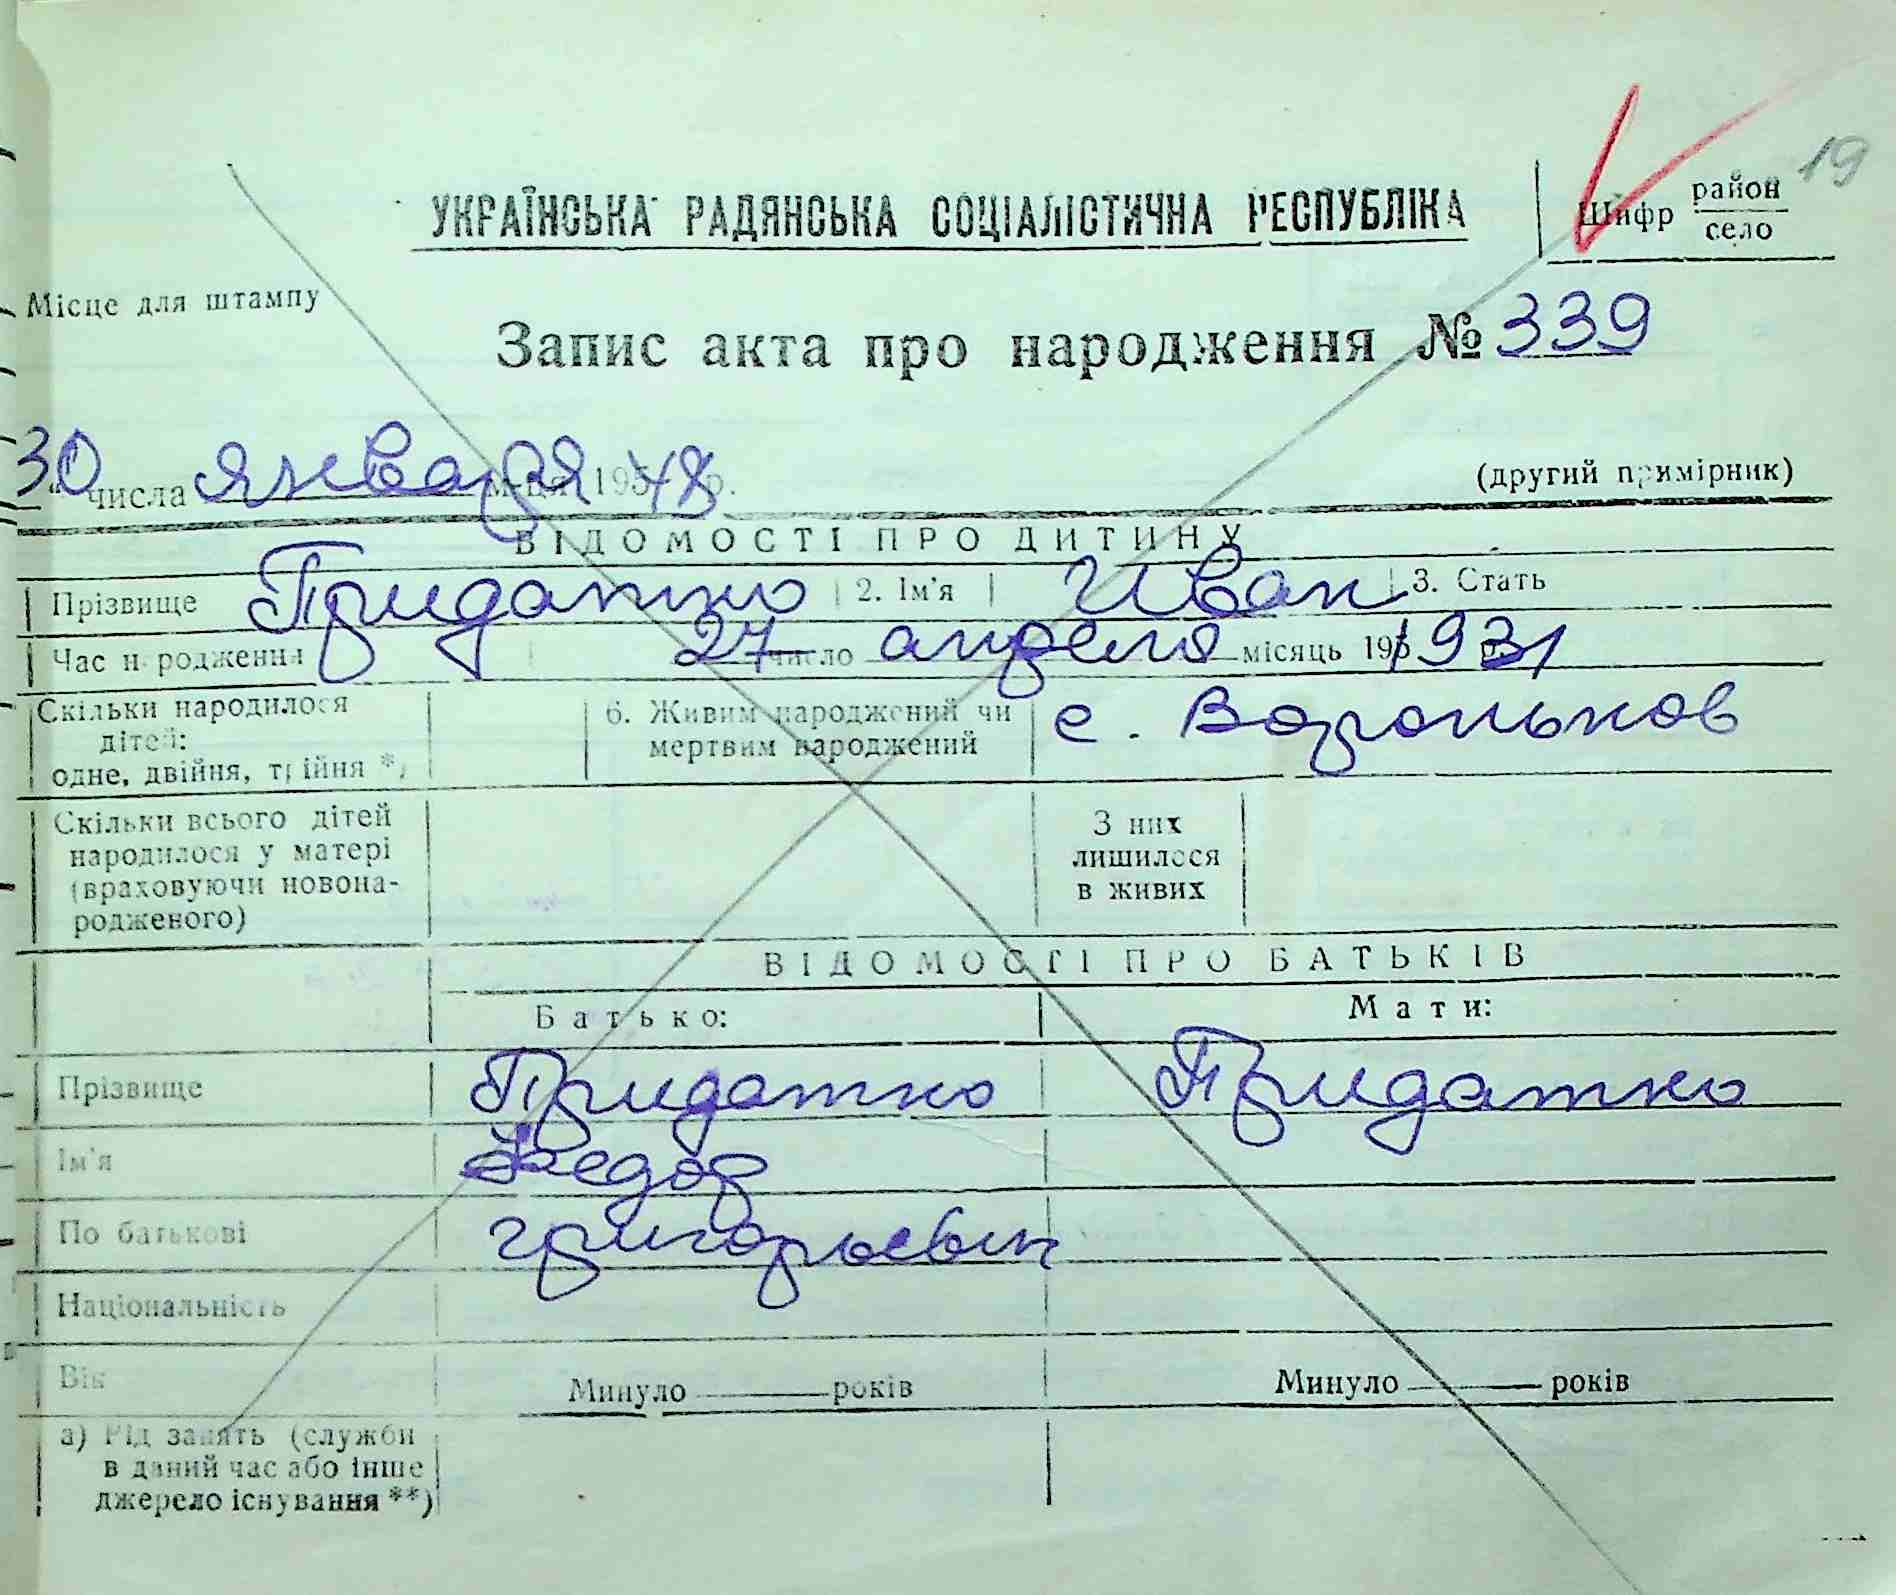 19
УКРАЇНСЬКА РАДЯНСЬКА СОЦІАЛІСТИЧНА РЕСПУБЛІКА
Шифр район
село
Місце для штампу
Запис акта про народження № 339
30 числа января м-ця 195 48 р.
(другий примірник)
ВІДОМОСТІ ПРО ДИТИНУ
Прізвище Придатко 2. Ім'я Иван 3. Стать
Час народження 27 число апреля місяць 195 1931
Скільки народилося дітей: одне, двійня, трійня *)
6. Живим народжений чи мертвим народжений
с. Вороньков
Скільки всього дітей народилося у матері (враховуючи новонародженого)
З них лишилося в живих
ВІДОМОСТІ ПРО БАТЬКІВ
Батько: Мати:
Прізвище Придатко Придатко
Ім'я Федор
По батькові Григорьевич
Національність
Вік Минуло років Минуло років
а) Рід занять (служби
в даний час або інше
джерело існування **)